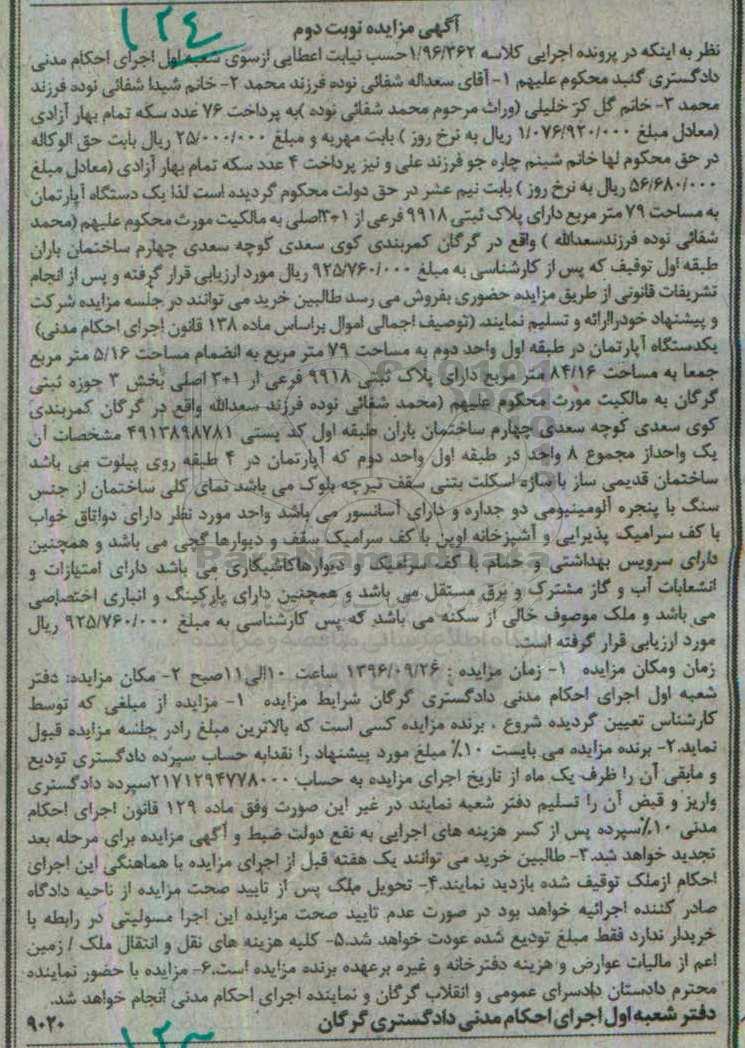 ۱۲۴
آگهی مزایده نوبت دوم
نظر به اینکه در پرونده اجرایی کلاسه ۱/۹۶/۳۶۲حسب نیابت اعطایی ازسوی شعبه اول اجرای احکام مدنی
دادگستری گنبد محکوم علیهم ۱- آقای سعداله شفائی نوده فرزند محمد ۲- خانم شیدا شفائی نوده فرزند
محمد ۳- خانم گل کز خلیلی (وراث مرحوم محمد شفائی نوده )به پرداخت ۷۶ عدد سکه تمام بهار آزادی
(معادل مبلغ ۱/۰۷۶/۹۲۰/۰۰۰ ریال به نرخ روز ) بابت مهریه و مبلغ ۲۵/۰۰۰/۰۰۰ ریال بابت حق الوکاله
در حق محکوم لها خانم شبنم چاره جو فرزند علی و نیز پرداخت ۴ عدد سکه تمام بهار آزادی (معادل مبلغ
۵۶/۶۸۰/۰۰۰ ریال به نرخ روز ) بابت نیم عشر در حق دولت محکوم گردیده است لذا یک دستگاه آپارتمان
به مساحت ۷۹ متر مربع دارای پلاک ثبتی ۹۹۱۸ فرعی از ۳۰۱اصلی به مالکیت مورث محکوم علیهم (محمد
شفائی نوده فرزندسعدالله ) واقع در گرگان کمربندی کوی سعدی کوچه سعدی چهارم ساختمان باران
طبقه اول توقیف که پس از کارشناسی به مبلغ ۹۲۵/۷۶۰/۰۰۰ ریال مورد ارزیابی قرار گرفته و پس از انجام
تشریفات قانونی از طریق مزایده حضوری بفروش می رسد طالبین خرید می توانند در جلسه مزایده شرکت
و پیشنهاد خودراارائه و تسلیم نمایند. (توصیف اجمالی اموال براساس ماده ۱۳۸ قانون اجرای احکام مدنی)
یکدستگاه آپارتمان در طبقه اول واحد دوم به مساحت ۷۹ متر مربع به انضمام مساحت ۵/۱۶ متر مربع
جمعا به مساحت ۸۴/۱۶ متر مربع دارای پلاک ثبتی ۹۹۱۸ فرعی از ۳۰۱ اصلی بخش ۳ حوزه ثبتی
گرگان به مالکیت مورث محکوم علیهم (محمد شفائی نوده فرزند سعدالله واقع در گرگان کمربندی
کوی سعدی کوچه سعدی چهارم ساختمان باران طبقه اول کد پستی ۴۹۱۳۸۹۸۷۸۱ مشخصات آن
یک واحداز مجموع ۸ واحد در طبقه اول واحد دوم که آپارتمان در ۴ طبقه روی پیلوت می باشد
ساختمان قدیمی ساز با سازه اسکلت بتنی سقف تیرچه بلوک می باشد نمای کلی ساختمان از جنس
سنگ با پنجره آلومینیومی دو جداره و دارای آسانسور می باشد واحد مورد نظر دارای دواتاق خواب
با کف سرامیک پذیرایی و آشپزخانه اوپن با کف سرامیک سقف و دیوارها گچی می باشد و همچنین
دارای سرویس بهداشتی و حمام با کف سرامیک و دیوارهاکاشیکاری می باشد دارای امتیازات و
انشعابات آب و گاز مشترک و برق مستقل می باشد و همچنین دارای پارکینگ و انباری اختصاصی
می باشد و ملک موصوف خالی از سکنه می باشد که پس کارشناسی به مبلغ ۹۲۵/۷۶۰/۰۰۰ ریال
مورد ارزیابی قرار گرفته است.
زمان ومکان مزایده ۱- زمان مزایده : ۱۳۹۶/۰۹/۲۶ ساعت ۱۰الی۱۱صبح ۲- مکان مزایده: دفتر
شعبه اول اجرای احکام مدنی دادگستری گرگان شرایط مزایده ۱- مزایده از مبلغی که توسط
کارشناس تعیین گردیده شروع ، برنده مزایده کسی است که بالاترین مبلغ رادر جلسه مزایده قبول
نماید.۲- برنده مزایده می بایست ۱۰٪ مبلغ مورد پیشنهاد را نقدابه حساب سپرده دادگستری تودیع
و مابقی آن را ظرف یک ماه از تاریخ اجرای مزایده به حساب ۲۱۷۱۲۹۴۷۷۸۰۰۰سپرده دادگستری
واریز و قبض آن را تسلیم دفتر شعبه نمایند در غیر این صورت وفق ماده ۱۲۹ قانون اجرای احکام
مدنی ۱۰٪سپرده پس از کسر هزینه های اجرایی به نفع دولت ضبط و آگهی مزایده برای مرحله بعد
تجدید خواهد شد.۳- طالبین خرید می توانند یک هفته قبل از اجرای مزایده با هماهنگی این اجرای
احکام ازملک توقیف شده بازدید نمایند.۴- تحویل ملک پس از تأیید صحت مزایده از ناحیه دادگاه
صادر کننده اجرائیه خواهد بود در صورت عدم تایید صحت مزایده این اجرا مسولیتی در رابطه با
خریدار ندارد فقط مبلغ تودیع شده عودت خواهد شد.۵- کلیه هزینه های نقل و انتقال ملک / زمین
اعم از مالیات عوارض و هزینه دفترخانه و غیره برعهده برنده مزایده است.۶- مزایده با حضور نماینده
محترم دادستان دادسرای عمومی و انقلاب گرگان و نماینده اجرای احکام مدنی انجام خواهد شد.
دفتر شعبه اول اجرای احکام مدنی دادگستری گرگان
۹۰۲۰
ParsNamadData